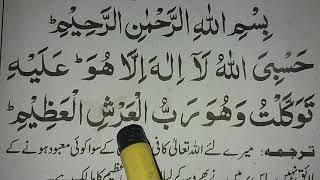 بِسْمِ اللهِ الرَّحْمٰنِ الرَّحِيْمِ
حَسْبِىَ اللهُ لَآ اِلٰهَ اِلَّا هُوَ ؕ عَلَيْهِ
تَوَكَّلْتُ وَهُوَ رَبُّ الْعَرْشِ الْعَظِيْمِ
ترجمه: میرے لئے اللہ تعالیٰ کافی کے سوا کوئی معبود ہونے کے
لائق نہیں عظیم کا مالک ہے